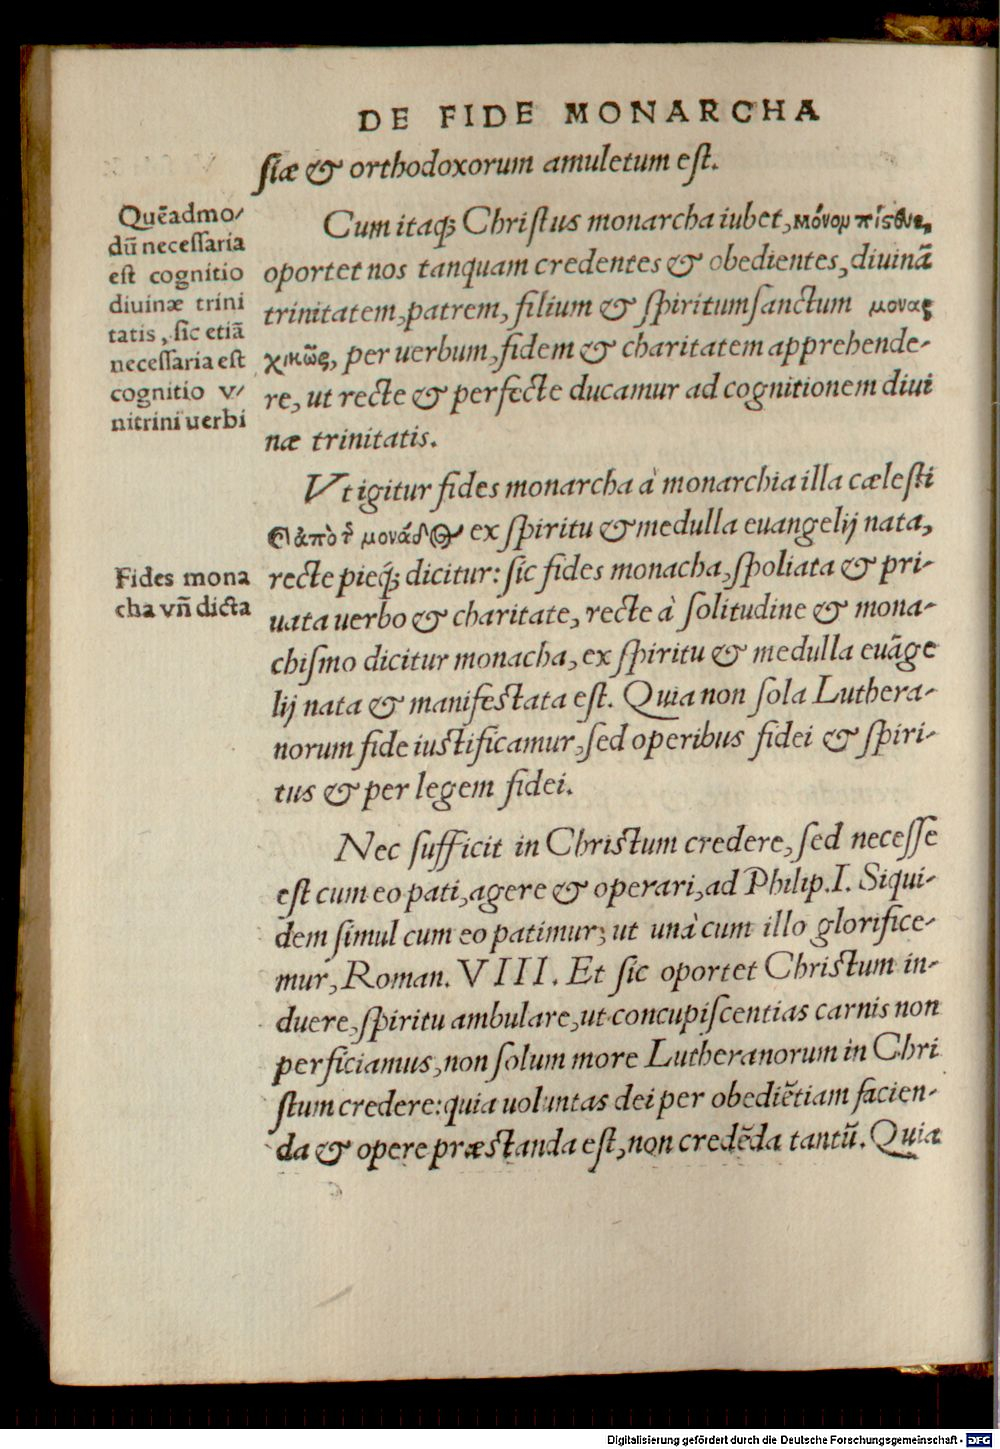 DE FIDE MONARCHA
ſiæ & orthodoxorum amuletum eſt.
Quēadmo/
dū neceſſaria
est cognitio
diuinæ trini
tatis, sic etiā
neceſſaria est
cognitio v/
nitrini uerbi
Cum itaqꝫ Chriſtus monarcha iubet, μόνον πίστευε,
oportet nos tanquam credentes & obedientes, diuinā
trinitatem, patrem, filium & ſpiritum ſanctum μοναρ
χικῶς, per uerbum, fidem & charitatem apprehende-
re, ut recte & perfecte ducamur ad cognitionem diui
næ trinitatis.
Vt igitur fides monarcha à monarchia illa cæleſti
ἀπὸ μονάδος ex ſpiritu & medulla euangelij nata,
recte pieqꝫ dicitur: ſic fides monacha, ſpoliata & pri-
uata uerbo & charitate, recte à ſolitudine & mona-
chiſmo dicitur monacha, ex ſpiritu & medulla euāge
lij nata & manifeſtata eſt. Quia non ſola Luthera-
norum fide iuſtificamur, ſed operibus fidei & ſpiri-
tus & per legem fidei.
Fides mona
cha vñ dicta
Nec ſufficit in Chriſtum credere, ſed neceſſe
eſt cum eo pati, agere & operari, ad Philip. I. Siqui-
dem ſimul cum eo patimur; ut unà cum illo glorifice-
mur, Roman. VIII. Et ſic oportet Chriſtum in-
duere, ſpiritu ambulare, ut concupiſcentias carnis non
perficiamus, non ſolum more Lutheranorum in Chri
ſtum credere: quia uoluntas dei per obediētiam facien-
da & opere præſtanda eſt, non credēda tantū. Quia
Digitalisierung gefördert durch die Deutsche Forschungsgemeinschaft - DFG